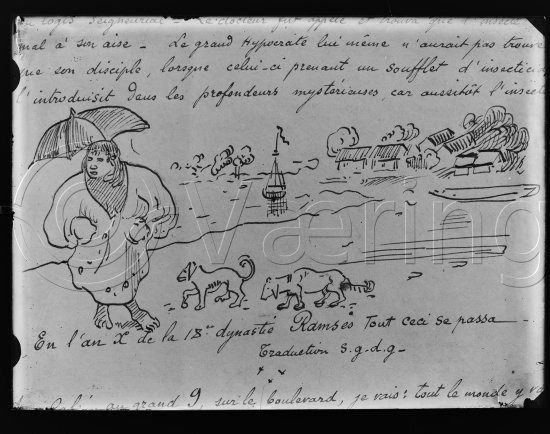 logis Seigneurial - Le docteur fut appelé et trouva que l'insecte
mal à son aise - Le grand Hypocrate lui même n'aurait pas trouvé
que son disciple, lorsque celui-ci prenant un soufflet d'insectici
l'introduisit dans les profondeurs mystérieuses, car aussitôt l'insect
© Væring
En l'an X de la 18me dynastie Ramsès Tout ceci se passa -
Traduction s.g.d.g -
au grand 9, sur le boulevard, je vais: tout le monde y va